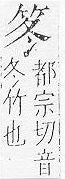 笗
都宗切音
冬竹也